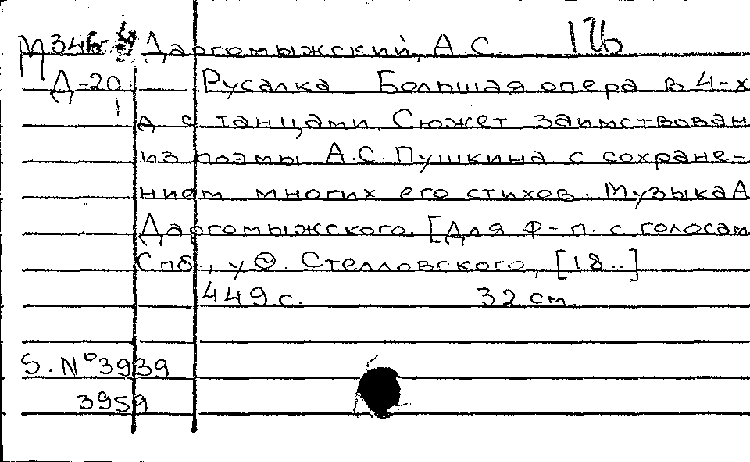 М Даргомыжский, А. С. 12б
Д-20 Русалка Большая опера в 4-х
1 д с танцами. Сюжет заимствован
из поэмы А.С. Пушкина с сохране-
нием многих его стихов. Музыка А
Даргомыжского. [Для ф-п. с голосам
Спб., у Ѳ. Стелловского, [18..]
449 с. 32 см.
S. N° 3939
3959